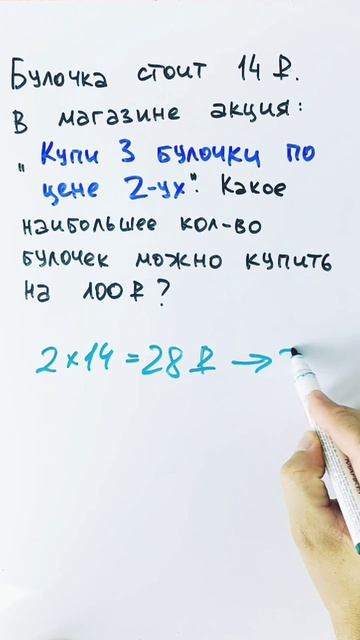 Булочка стоит 14 ₽.
В магазине акция:
"Купи 3 булочки по
цене 2-ух". Какое
наибольшее кол-во
булочек можно купить
на 100 ₽ ?
2 × 14 = 28 ₽ →